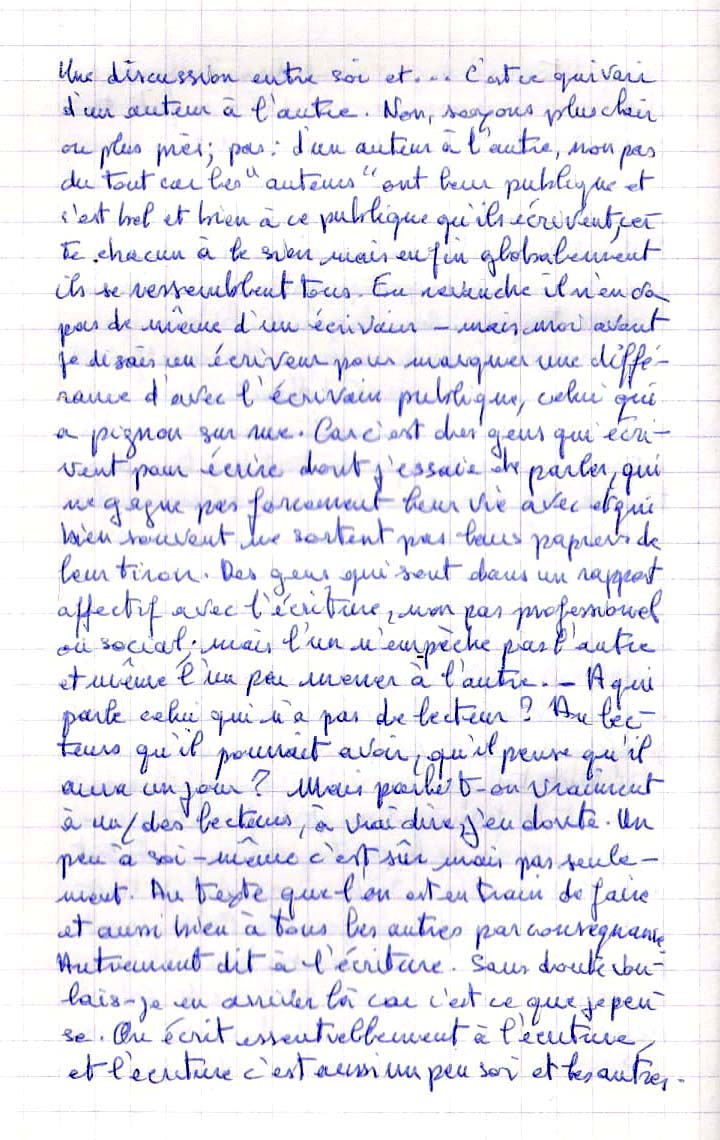 Une discussion entre soi et... C'est ce qui vari
d'un auteur à l'autre. Non, soyons plus clair
ou plus près; pas: d'un auteur à l'autre, non pas
du tout car les "auteurs" ont leur publique et
c'est bel et bien à ce publique qu'ils écrivent, cer
te chacun à le sien mais enfin globalement
ils se ressemblent tous. En revanche il n'en va
pas de même d'un écrivain - mais moi avant
je disais un écriveur pour marquer une diffé-
rance d'avec l'écrivain publique, celui qui
a pignon sur rue. Car c'est des gens qui écri-
vent pour écrire dont j'essaie de parler, qui
ne gagne pas forcement leur vie avec et qui
bien souvent ne sortent pas leurs papiers de
leur tiroir. Des gens qui sont dans un rapport
affectif avec l'écriture, non pas professionel
ou social; mais l'un n'empêche pas l'autre
et même l'un peu mener à l'autre. - A qui
parle celui qui n'a pas de lecteur ? Au lec-
teurs qu'il pourrait avoir, qu'il pense qu'il
aura un jour ? Mais parle t-on vraiment
à un/des lecteurs, à vrai dire, j'en doute. Un
peu à soi-même c'est sûr mais pas seule-
ment. Au texte que l'on est en train de faire
et aussi bien à tous les autres par conséquance
Autrement dit à l'écriture. Sans doute vou-
lais-je en arriver là car c'est ce que je pen
se. On écrit essentiellement à l'écriture,
et l'écriture c'est aussi un peu soi et les autres.